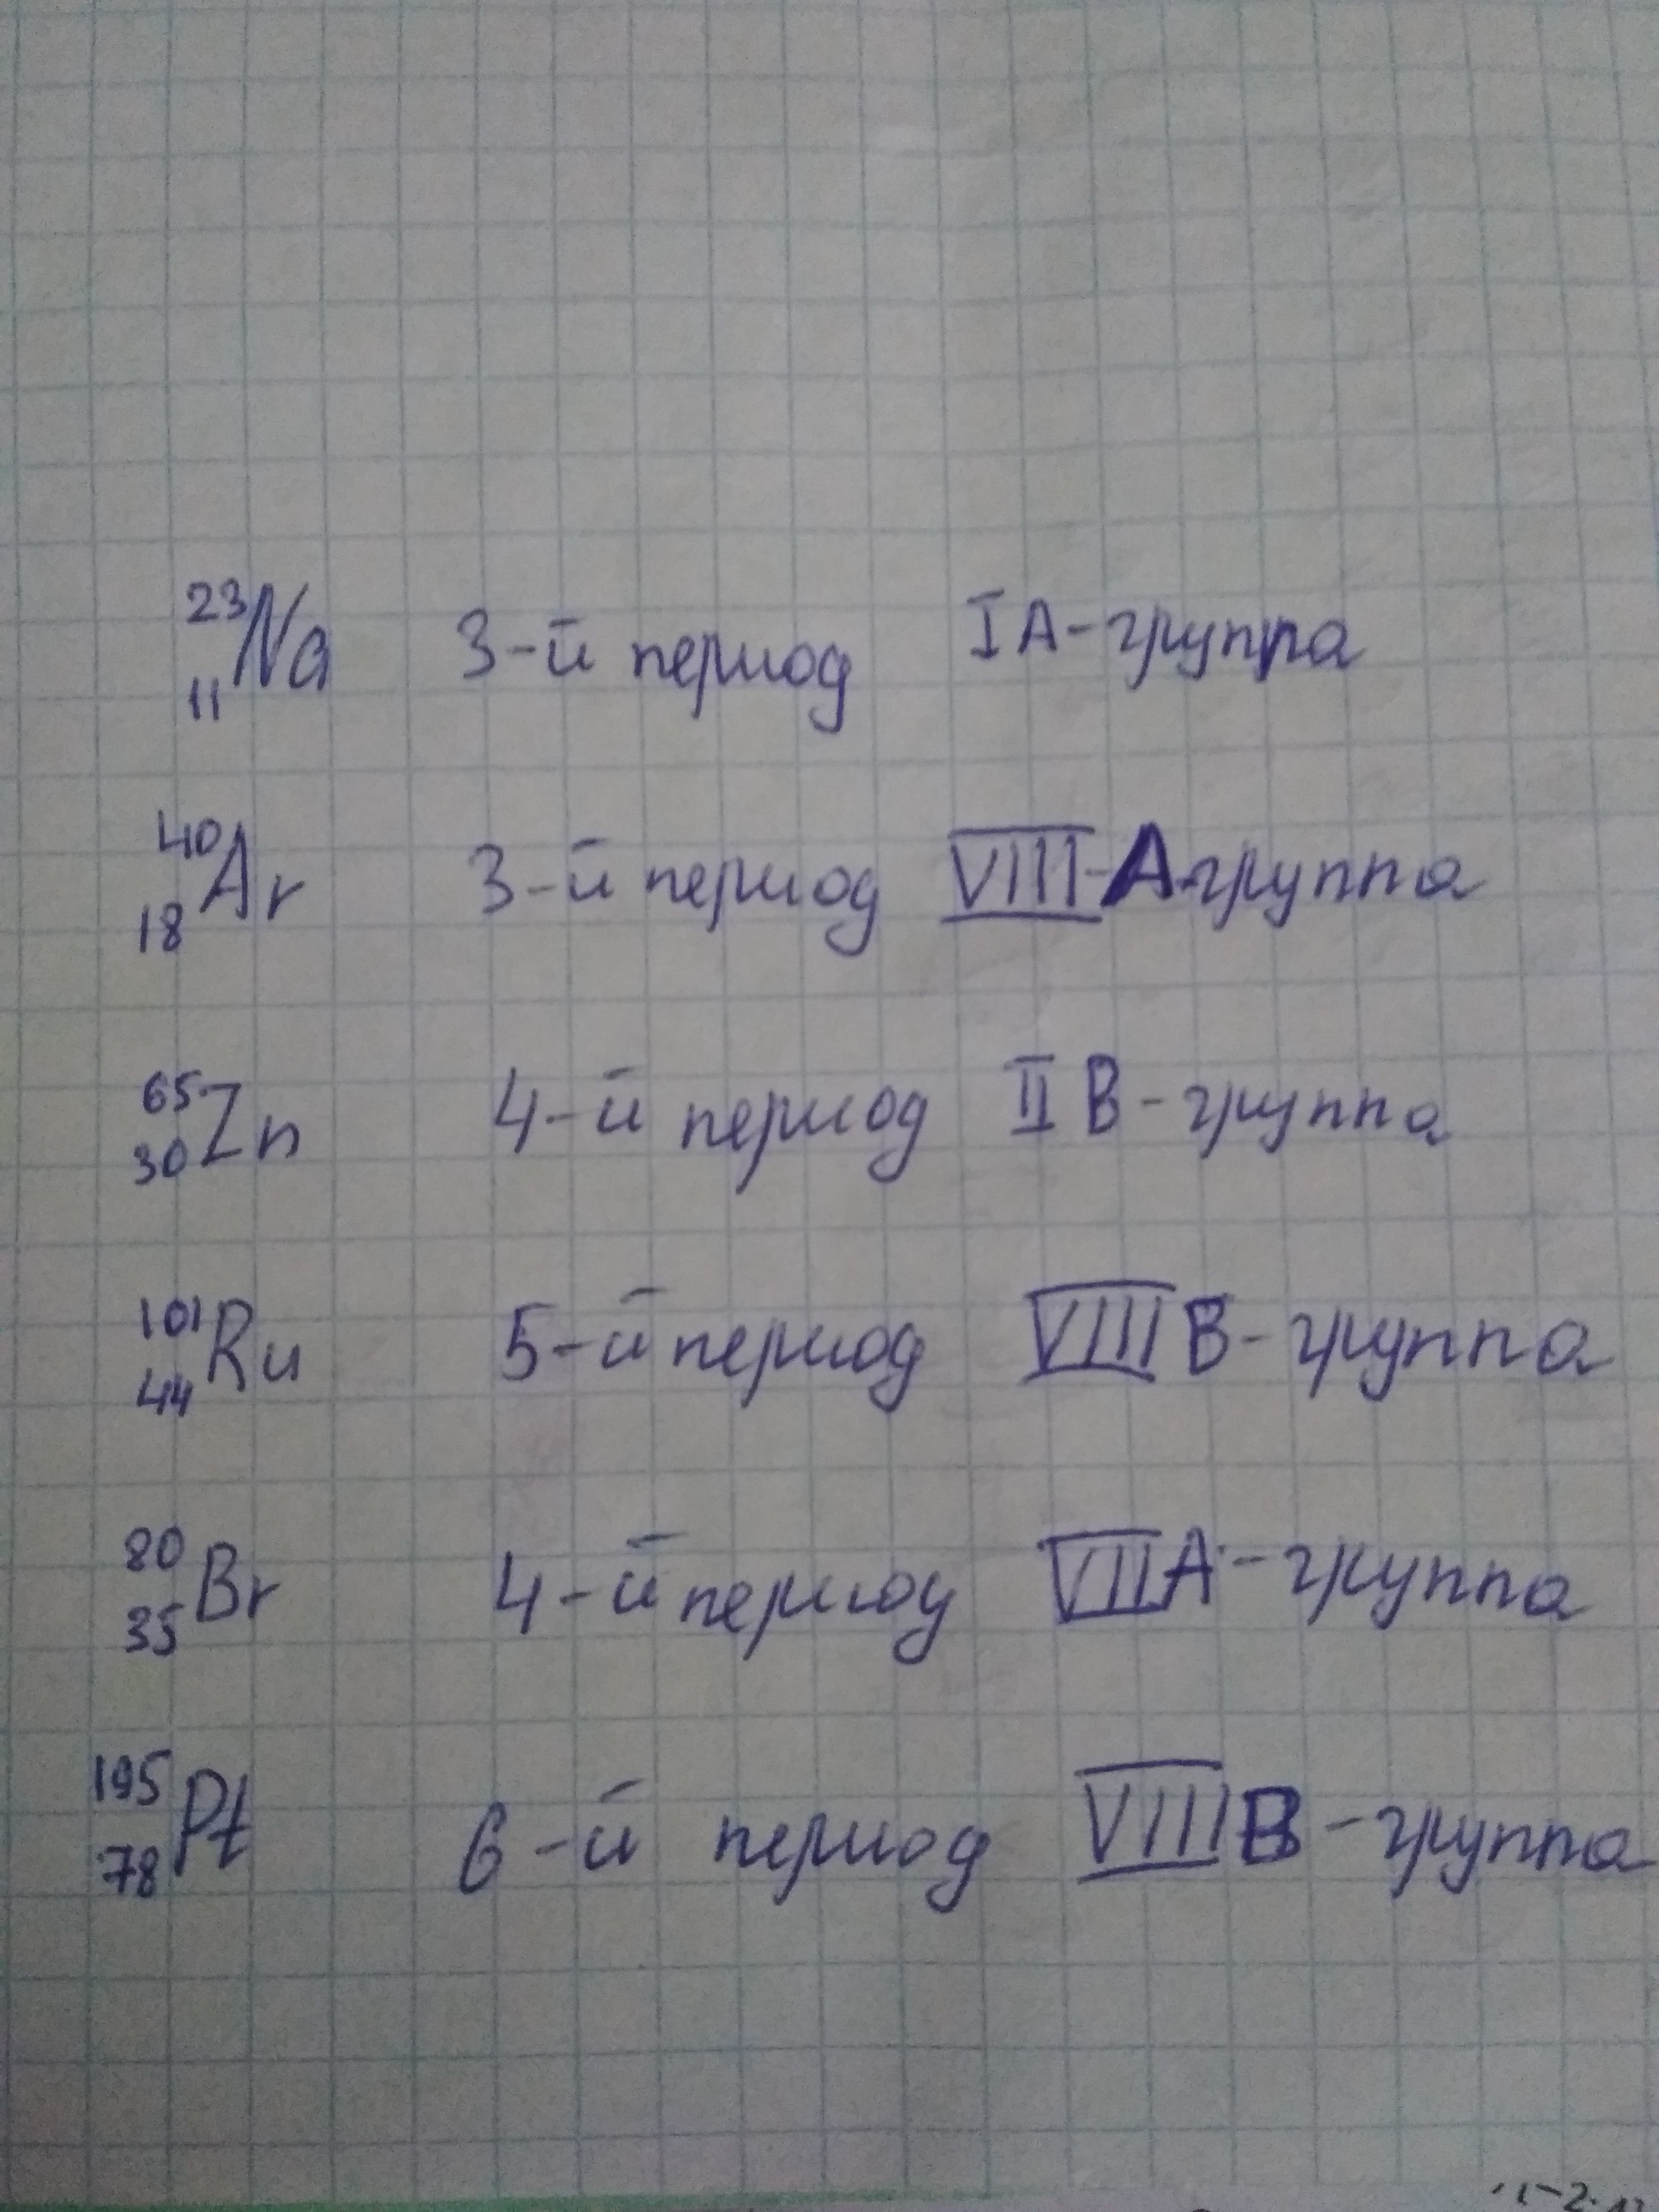 ²³₁₁Na 3-й период IA-группа
⁴⁰₁₈Ar 3-й период VIII-A-группа
⁶⁵₃₀Zn 4-й период IIB-группа
¹⁰¹₄₄Ru 5-й период VIIIB-группа
⁸⁰₃₅Br 4-й период VIIA-группа
¹⁹⁵₇₈Pt 6-й период VIIIB-группа